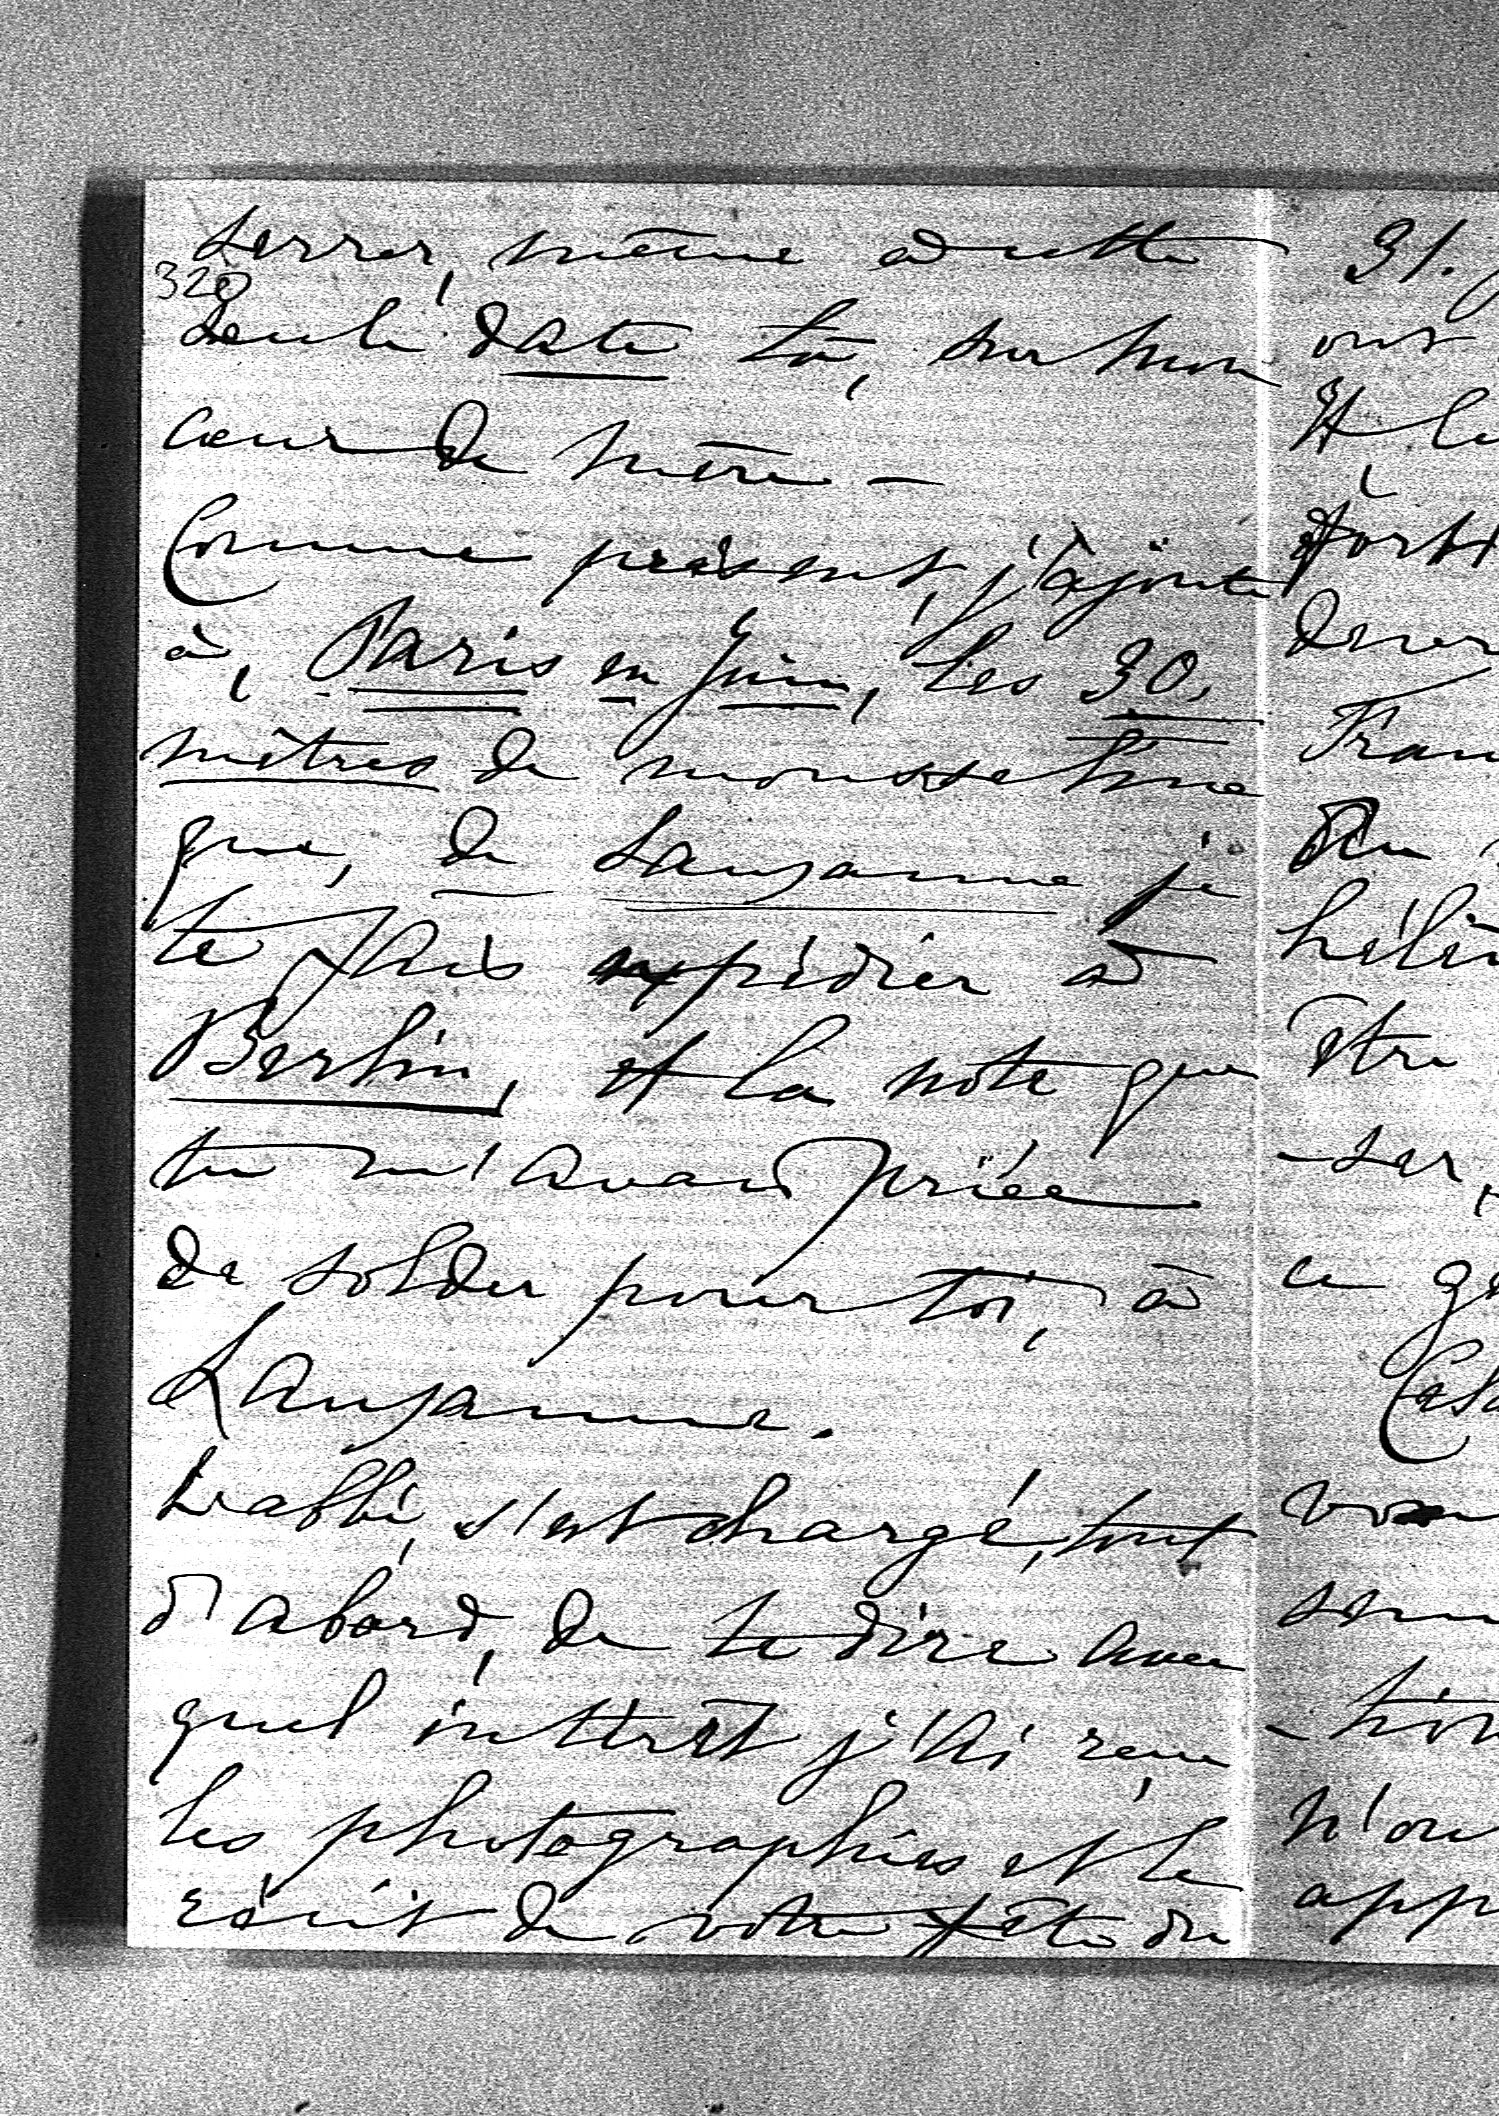 serrer, même à cette
320
seule date là, sur mon
cœur de mère –
Comme présent, j'ajoute
à, Paris en Juin, les 30,
mètres de mousseline
que, de Lausanne je
te fais expédier à
Berlin, et la note que
tu m'avais priée
de solder pour toi, à
Lausanne.
L'abbé, s'est chargé, tout
d'abord, de te dire avec
quel intérêt j'ai reçu
les photographies et le
récit de votre fête du
31.
ont
Et
Fran
être
-ser,
ce
n'on
app